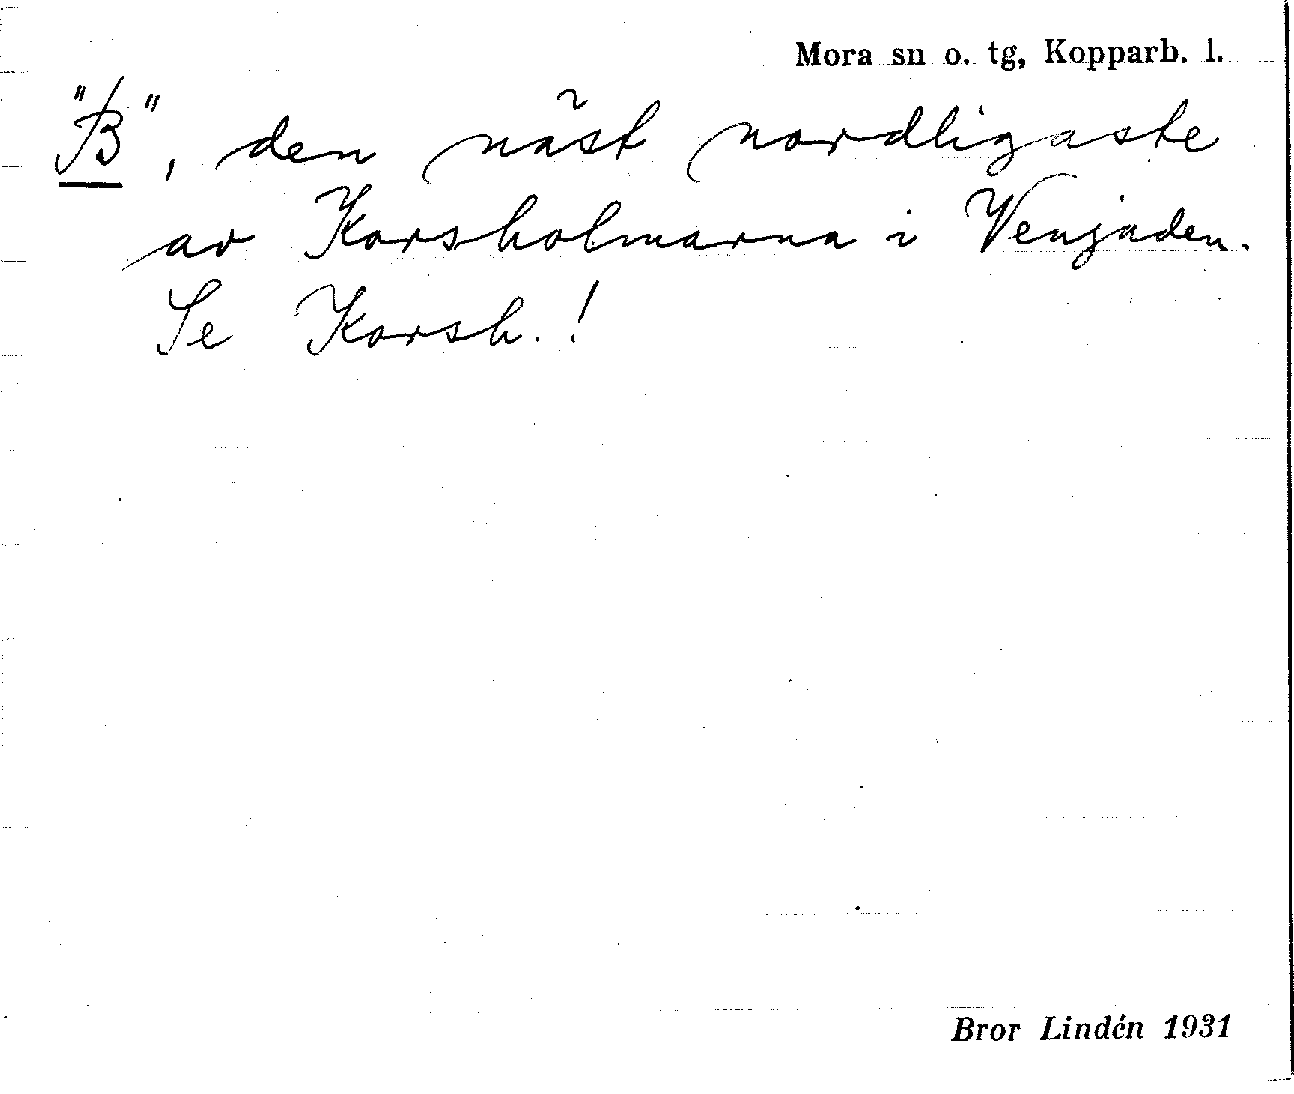 Mora sn o. tg, Kopparb. l.
"B", den näst nordligaste
av Korsholmarna i Venjaden.
Se Korsh.!
Bror Lindén 1931